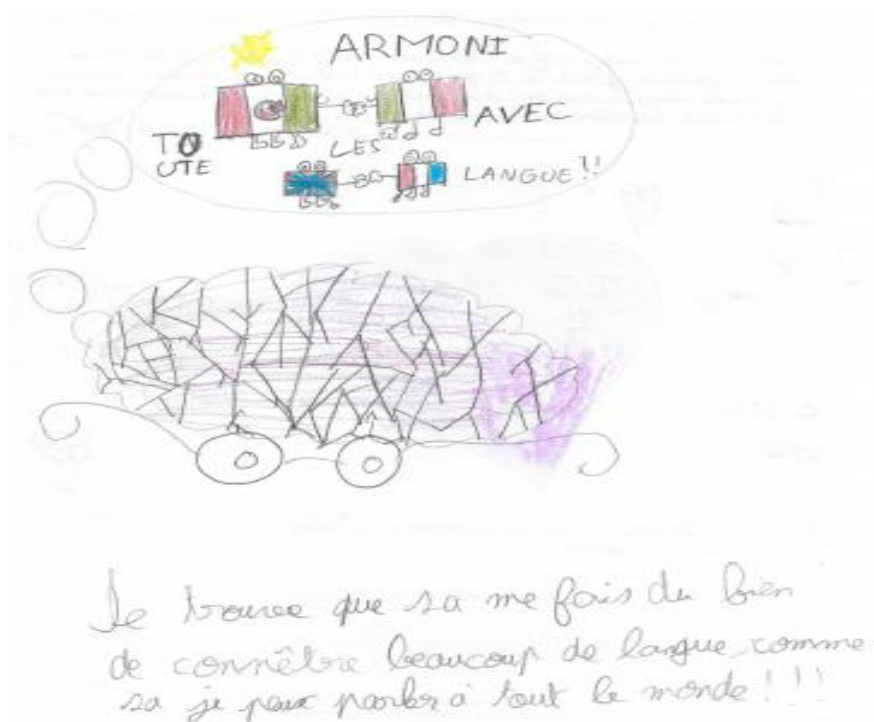 ARMONI
AVEC
TOUTE
LES
LANGUE !!
Je trouve que sa me fais du bien
de connêtre beaucoup de langue comme
sa je peux parler à tout le monde ! ! !